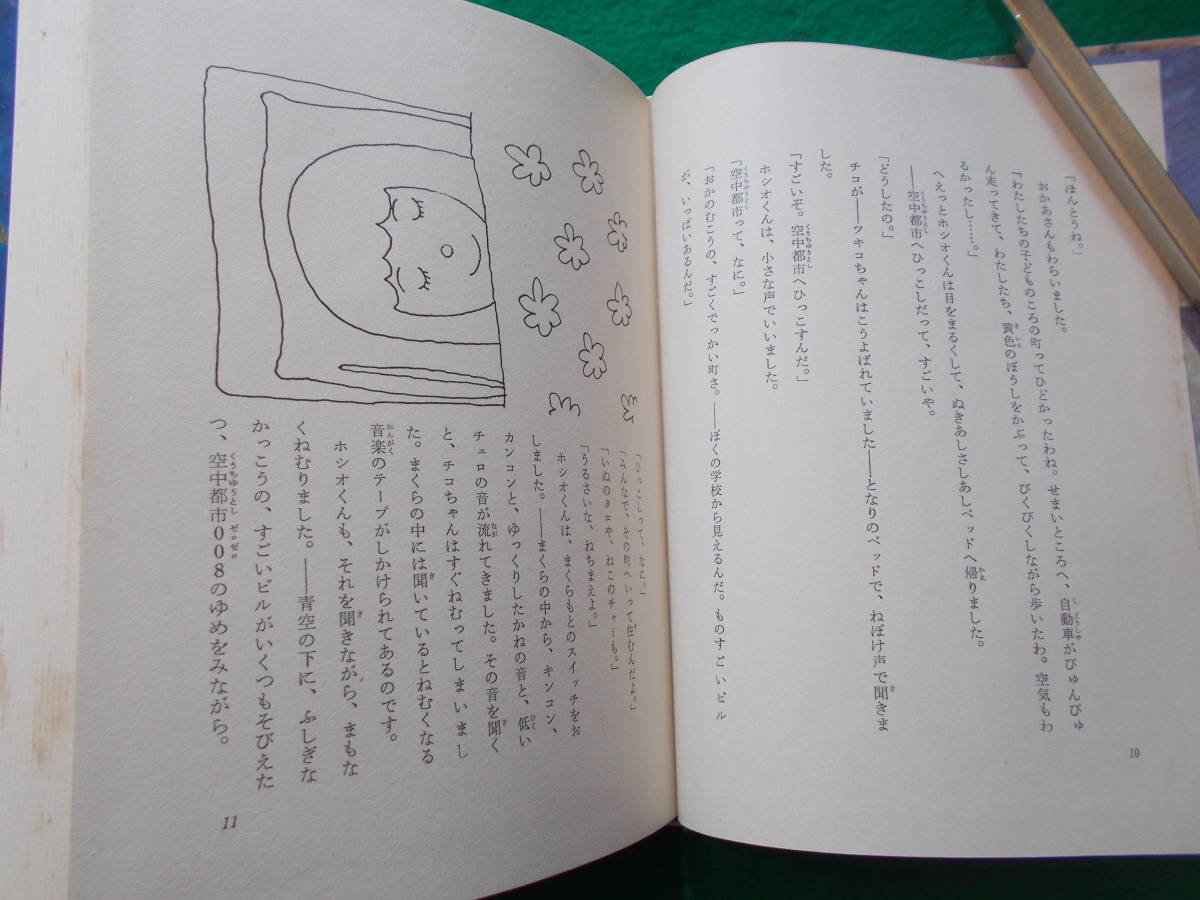 「ほんとうね。」
おかあさんもわらいました。
「わたしたちの子どものころの町ってひどかったわね。せまいところへ、自動車がびゅんびゅ
ん走ってきて、わたしたち、黄色のぼうしをかぶって、びくびくしながら歩いたわ。空気もわ
るかったし……。」
へえっとホシオくんは目をまるくして、ぬきあしさしあしベッドへ帰りました。
――空中都市へひっこしだって、すごいや。
「どうしたの。」
チコが――ツキコちゃんはこうよばれていました――となりのベッドで、ねぼけ声で聞きま
した。
「すごいぞ。空中都市へひっこすんだ。」
ホシオくんは、小さな声でいいました。
「空中都市って、なに。」
「おかのむこうの、すごくでっかい町さ。――ぼくの学校から見えるんだ。ものすごいビル
が、いっぱいあるんだ。」
10
「ひっこしって、なに。」
「みんなで、その町へいって住むんだよ。」
「いぬのタロや、ねこのチャミも。」
「うるさいな、ねちまえよ。」
ホシオくんは、まくらもとのスイッチをお
しました。――まくらの中から、キンコン、
カンコンと、ゆっくりしたかねの音と、低い
チェロの音が流れてきました。その音を聞く
と、チコちゃんはすぐねむってしまいまし
た。まくらの中には聞いているとねむくなる
音楽のテープがしかけられてあるのです。
ホシオくんも、それを聞きながら、まもな
くねむりました。――青空の下に、ふしぎな
かっこうの、すごいビルがいくつもそびえた
つ、空中都市008のゆめをみながら。
11